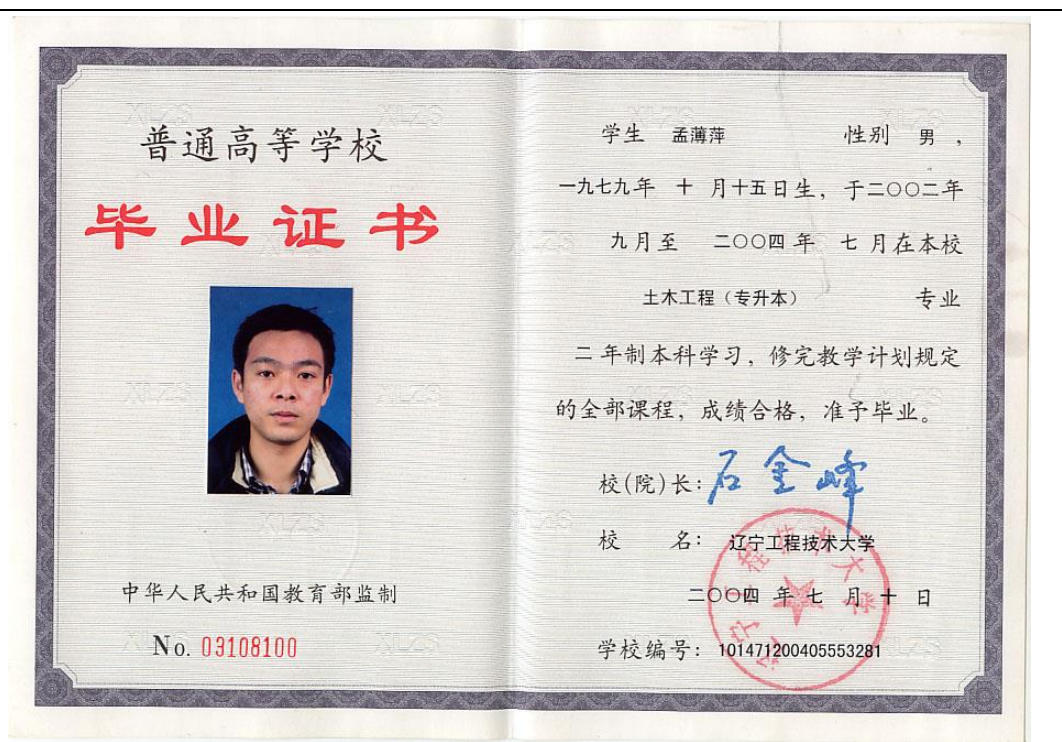 普通高等学校
毕业证书
中华人民共和国教育部监制
No. 03108100
学生 孟薄萍 性别 男，
一九七九年 十 月十五日生，于二〇〇二年
九月至 二〇〇四 年 七 月在本校
土木工程（专升本） 专业
二 年制本科学习，修完教学计划规定
的全部课程，成绩合格，准予毕业。
校(院)长：石金峰
校 名： 辽宁工程技术大学
二〇〇四 年 七 月 十 日
学校编号： 101471200405553281
辽宁工程技术大学
XLZS